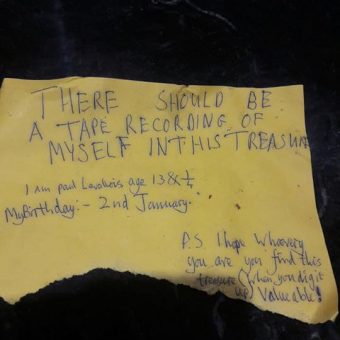 THERE SHOULD BE
A TAPE RECORDING OF
MYSELF IN THIS TREASURE
I am paul age 13 & 1/4
My Birthday:- 2nd January.
P.S I hope Whoevery
you are you find this
treasure (when you dig it
up) valueable!